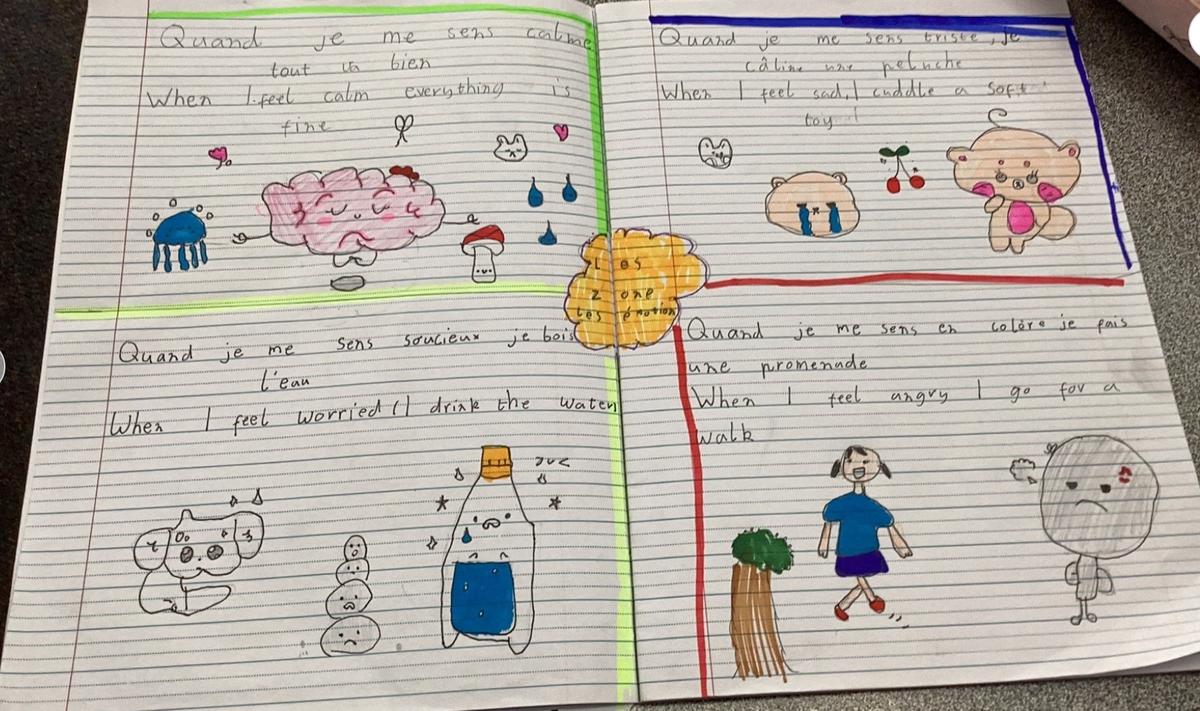 Quand je me sens calme
tout va bien
When I feel calm everything is
fine
Quand je me sens triste, je
câline une peluche
When I feel sad, I cuddle a soft
toy!
Les
zone
les émotion
Quand je me sens soucieux je bois
l'eau
When I feel worried I drink the water
Quand je me sens en colère je fais
une promenade
When I feel angry I go for a
walk